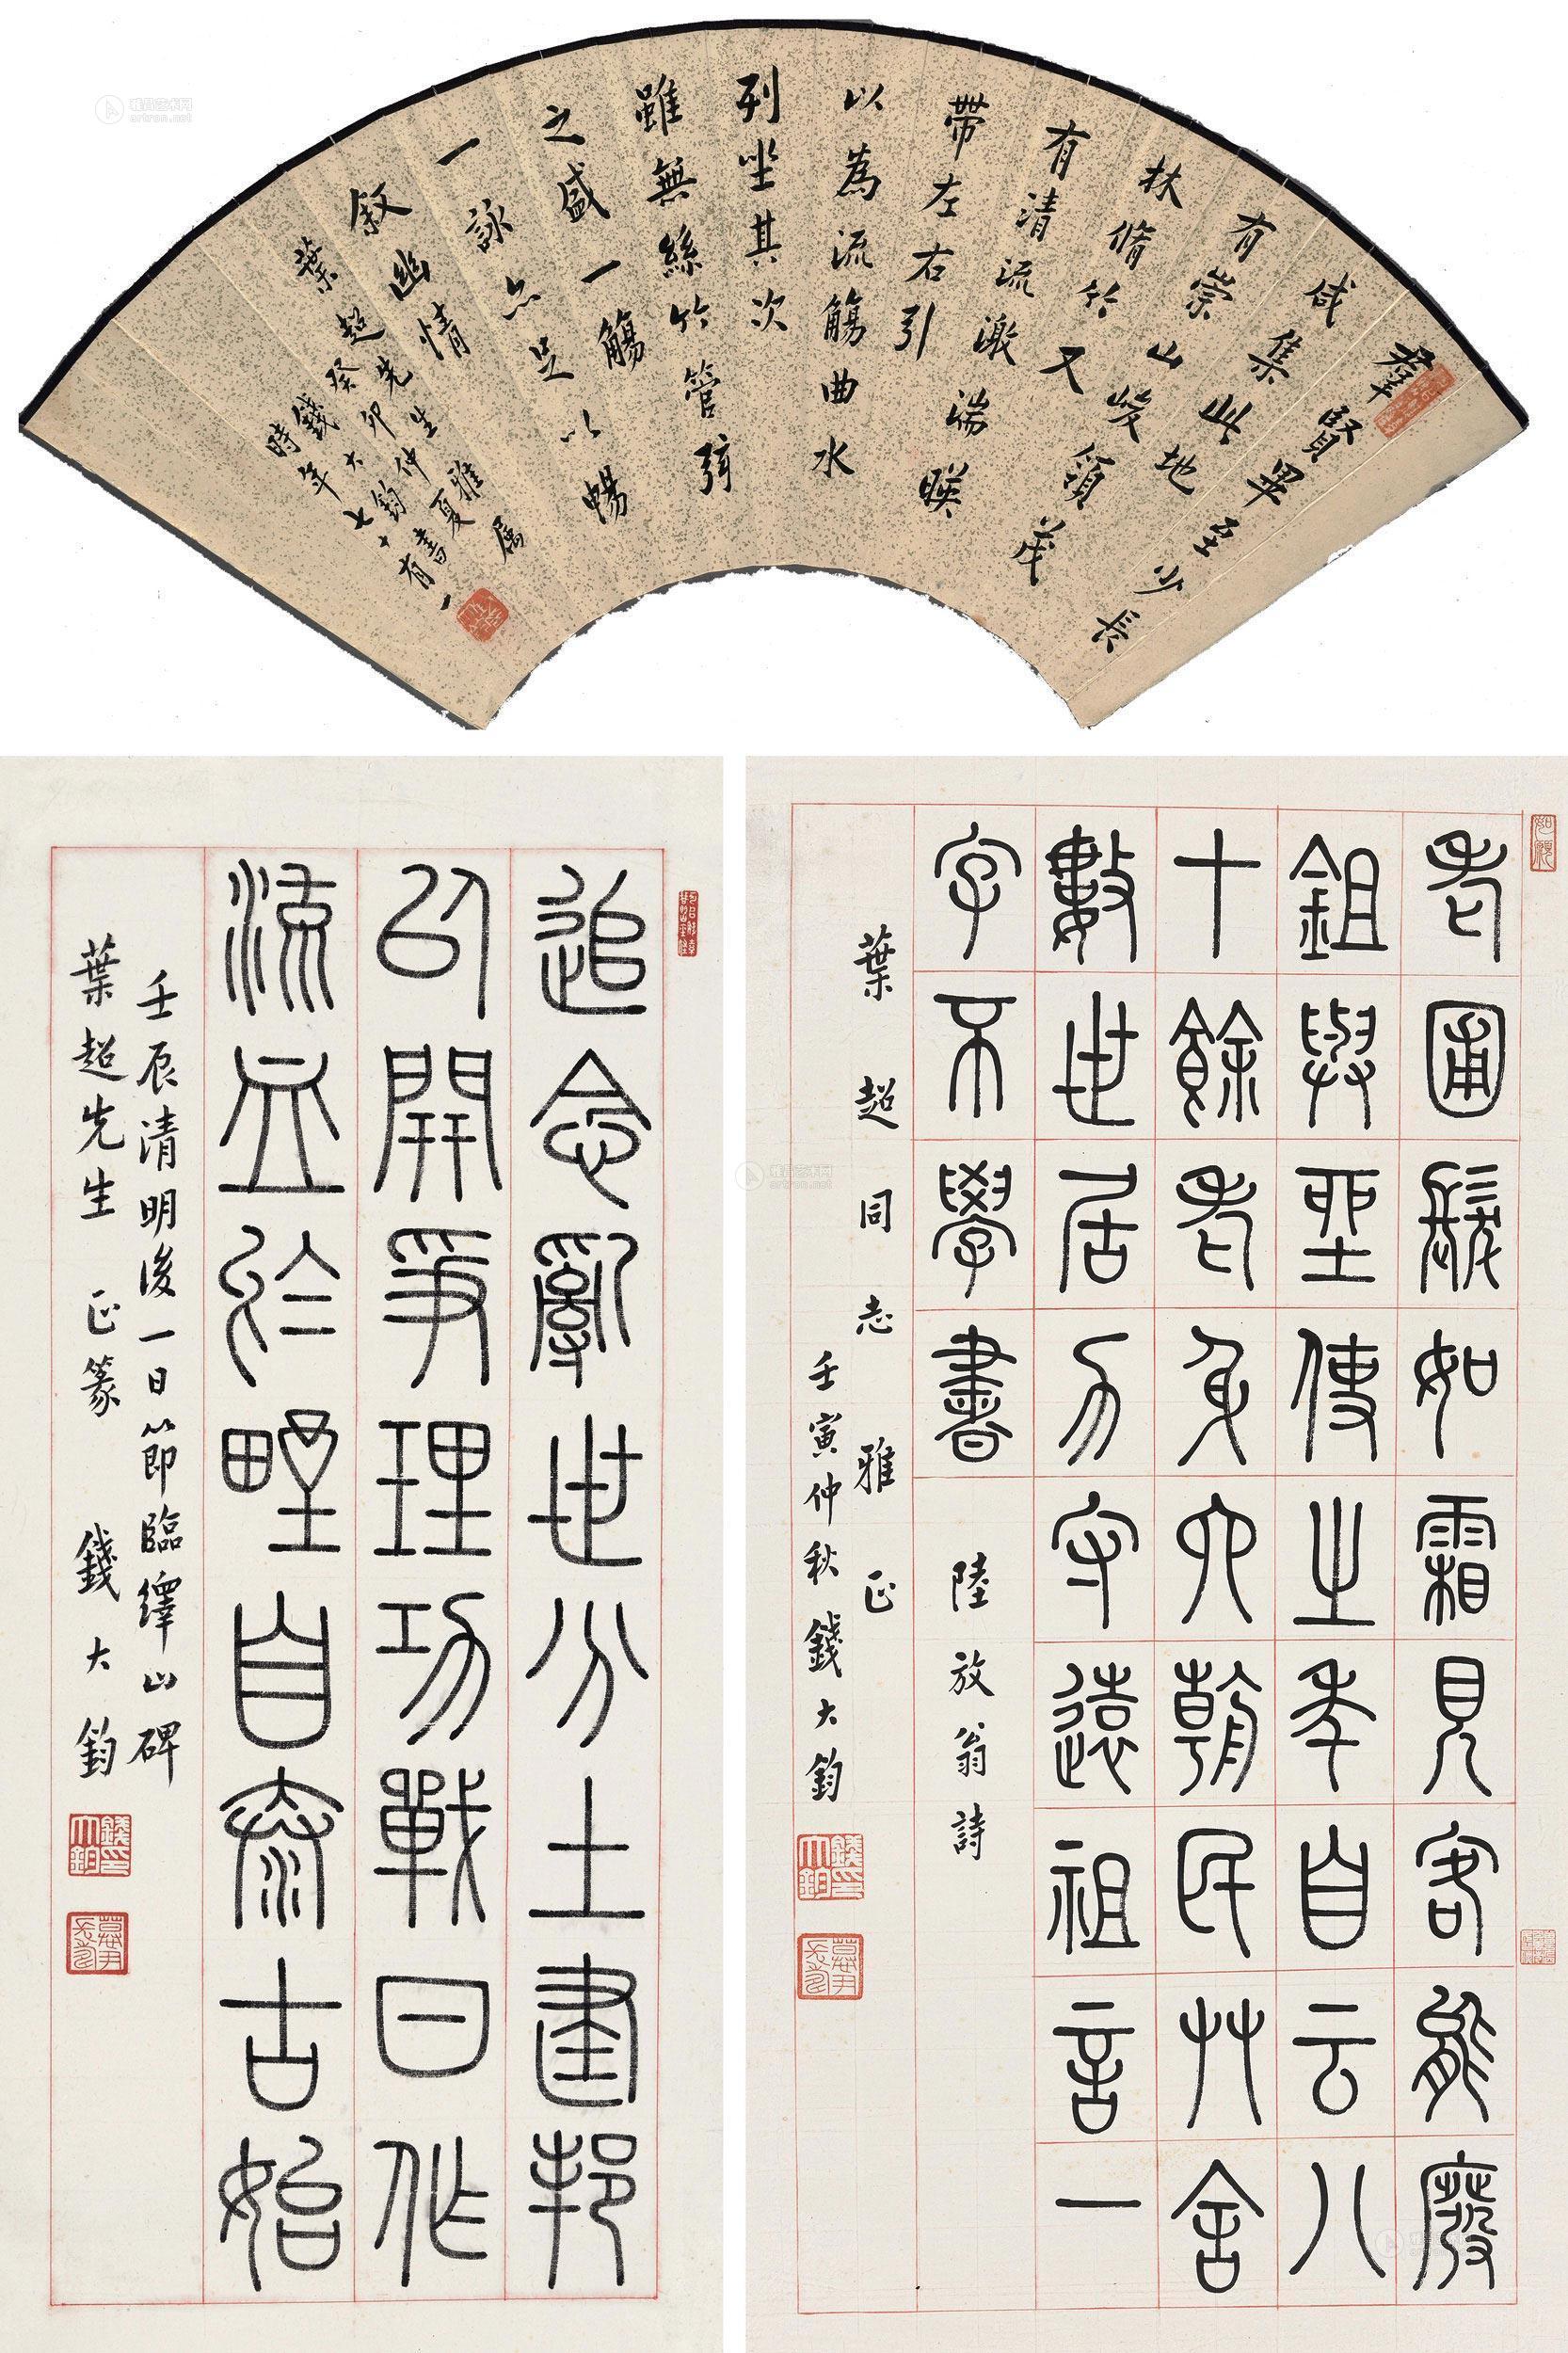 羣賢畢至少長
咸集此地
有崇山峻領茂
林脩竹又
有清流激湍暎
帶左右引
以為流觴曲水
列坐其次
雖無絲竹管弦
之盛一觴
一詠亦足以暢
叙幽情
葉超先生雅屬
癸卯仲夏錢大鈞書
時年七十有一
追念亂世分土建邦
以開爭理功戰日作
流血於野自泰古始
壬辰清明後一日節臨繹山碑
葉超先生 正篆 錢大鈞
老圃髮如霜見客能廢
鉏與坐使之年自云八
十餘老身六朝民艸舍
數世居力守遠祖言一
字不學書 陸放翁詩
葉超同志雅正
壬寅仲秋錢大鈞